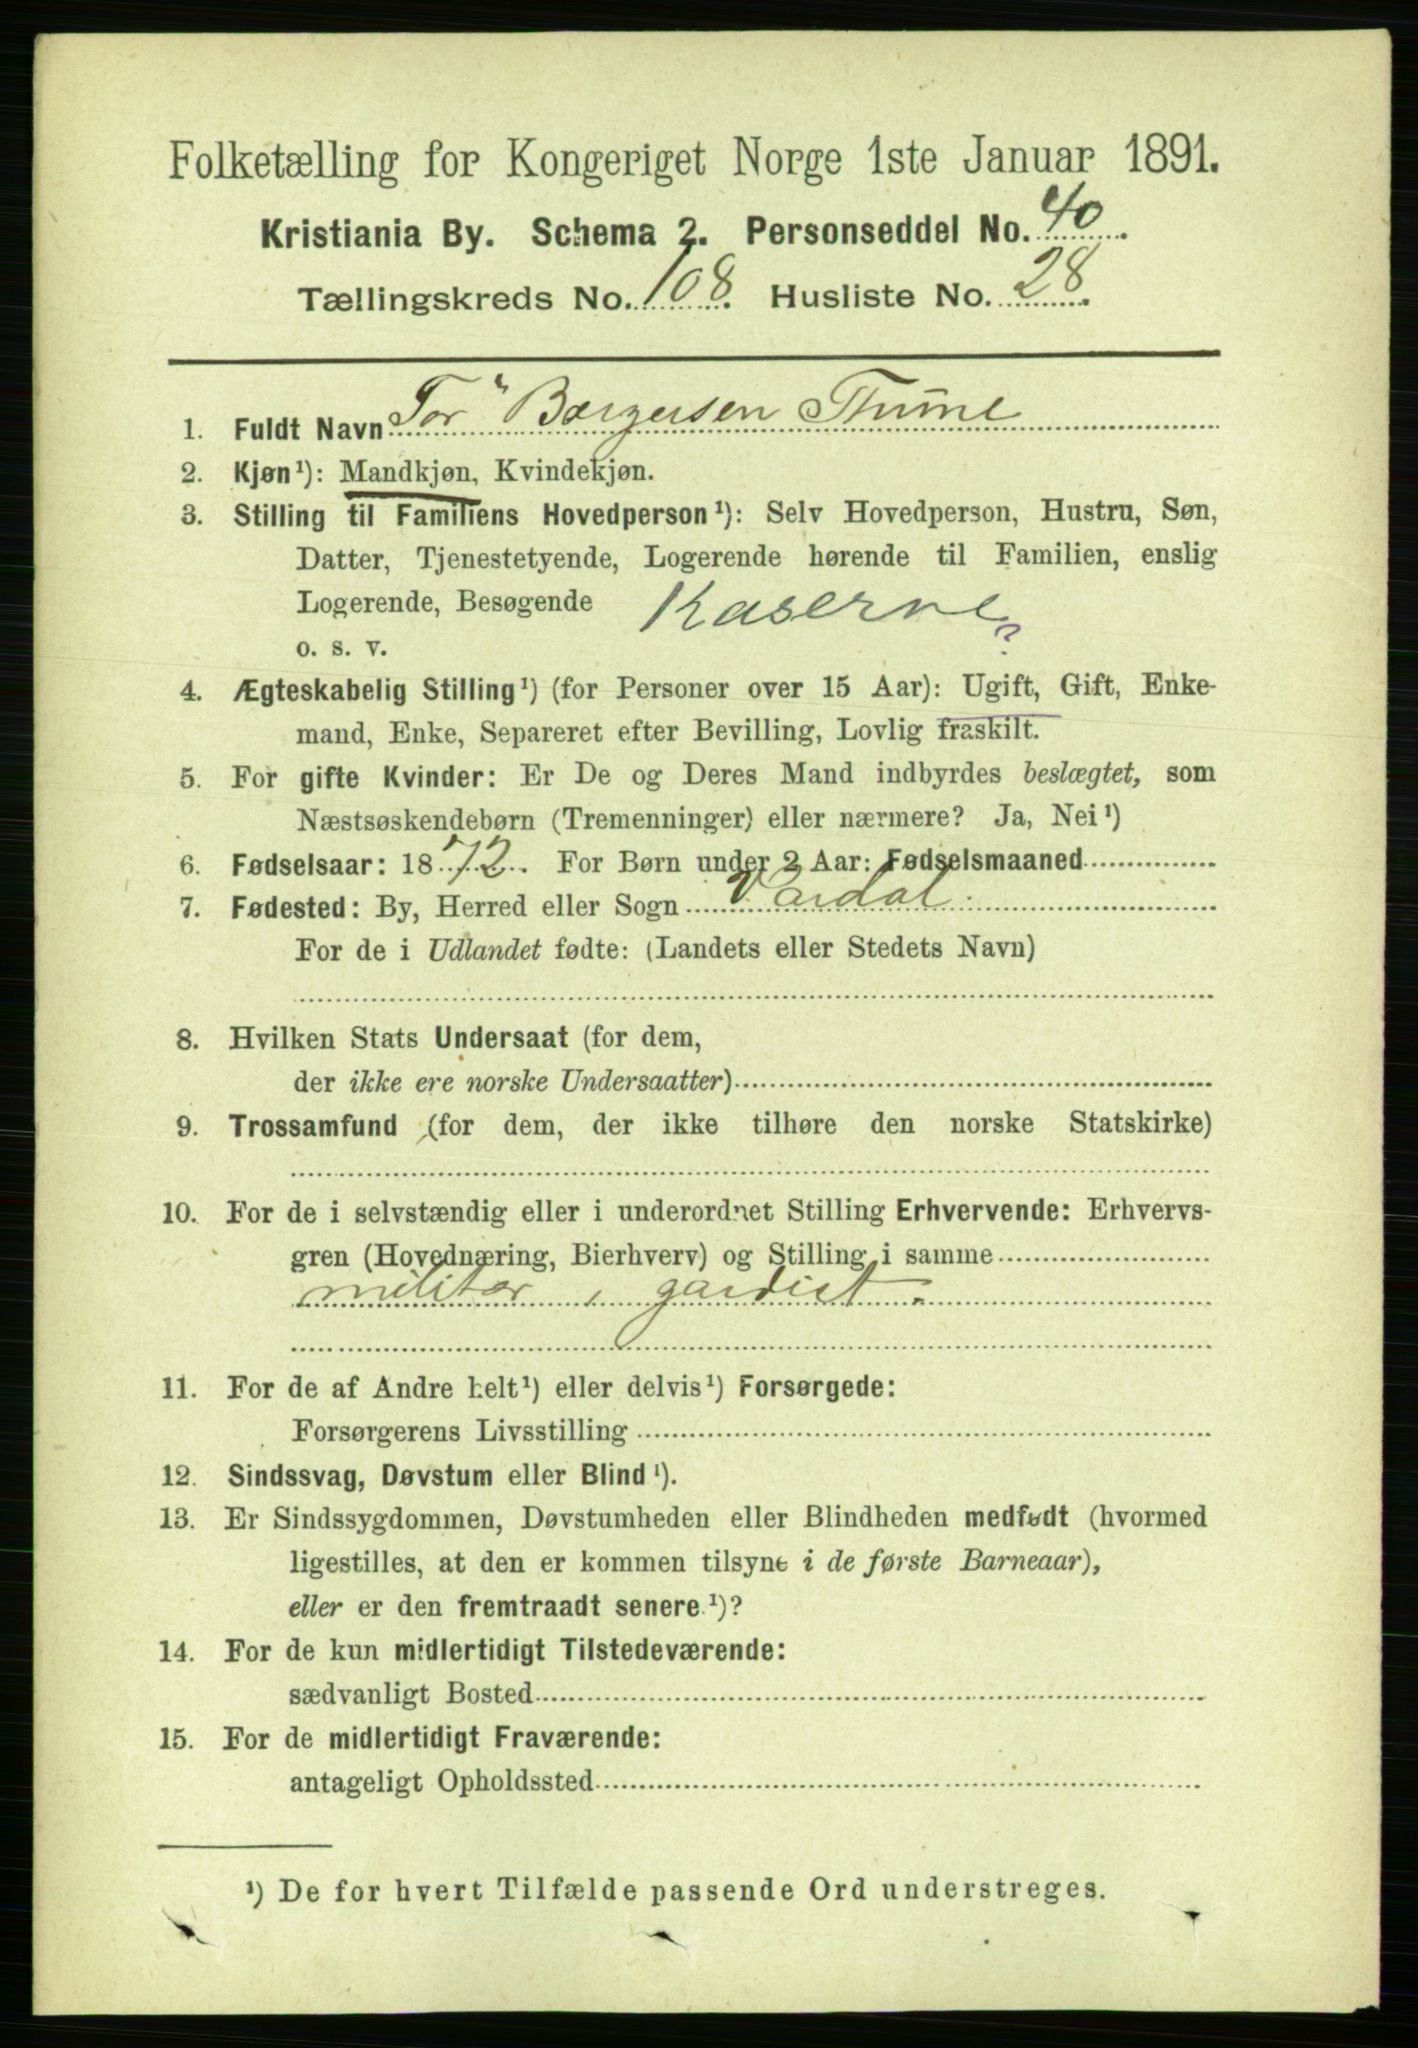 Folketælling for Kongeriget Norge 1ste Januar 1891.
Kristiania By. Schema 2. Personseddel No. 40.
Tællingskreds No. 108. Husliste No. 28.
1. Fuldt Navn Tor Børgersen Thune
2. Kjøn¹): Mandkjøn, Kvindekjøn.
3. Stilling til Familiens Hovedperson¹): Selv Hovedperson, Hustru, Søn,
Datter, Tjenestetyende, Logerende hørende til Familien, enslig
Logerende, Besøgende Kaserne ?
o. s. v.
4. Ægteskabelig Stilling¹) (for Personer over 15 Aar): Ugift, Gift, Enke-
mand, Enke, Separeret efter Bevilling, Lovlig fraskilt.
5. For gifte Kvinder: Er De og Deres Mand indbyrdes beslægtet, som
Næstsøskendebørn (Tremenninger) eller nærmere? Ja, Nei¹)
6. Fødselsaar: 1872. For Børn under 2 Aar: Fødselsmaaned
7. Fødested: By, Herred eller Sogn Vardal.
For de i Udlandet fødte: (Landets eller Stedets Navn)
8. Hvilken Stats Undersaat (for dem,
der ikke ere norske Undersaatter)
9. Trossamfund (for dem, der ikke tilhøre den norske Statskirke)
10. For de i selvstændig eller i underordnet Stilling Erhvervende: Erhvervs-
gren (Hovednæring, Bierhverv) og Stilling i samme
militær, gardist.
11. For de af Andre helt¹) eller delvis¹) Forsørgede:
Forsørgerens Livsstilling
12. Sindssvag, Døvstum eller Blind¹).
13. Er Sindssygdommen, Døvstumheden eller Blindheden medfødt (hvormed
ligestilles, at den er kommen tilsyne i de første Barneaar),
eller er den fremtraadt senere¹)?
14. For de kun midlertidigt Tilstedeværende:
sædvanligt Bosted
15. For de midlertidigt Fraværende:
antageligt Opholdssted
¹) De for hvert Tilfælde passende Ord understreges.